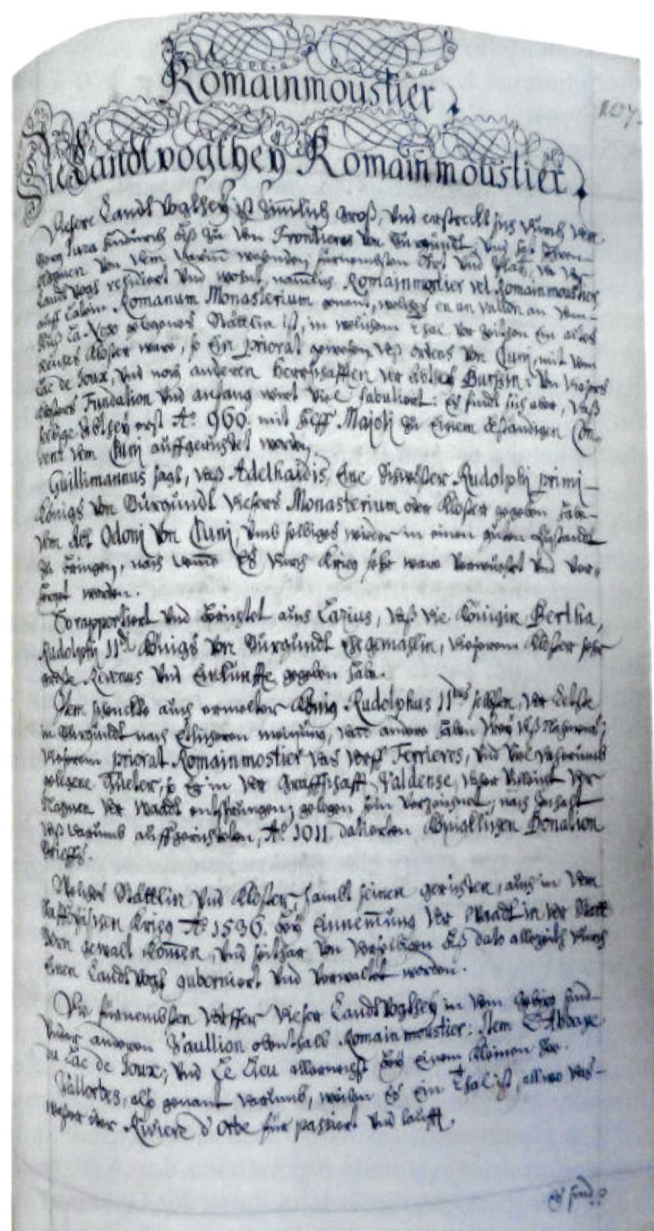 Romainmoustier.
207.
Die Landtvogthey Romainmoustier.
Diese Landtvogthey ist zimmlich groß, und erstreckt sich durch den
berg Jura hindurch biß zu den Frontieres von Burgundt, und hat ihren
Nammen von dem darinn ligenden fürnemsten Ort und platz, da der
Landtvogt residiert und wohnt, namlich Romainmostier vel Romainmoustier
auff Latin Romanum Monasterium genant, welches en un vallon an dem
gelegenes Stättlin ist, in welchem thal vor zeiten ein altes
Closter ware, so Ein priorat gewesen deß ordens von Cluni, mit dem
Lac de Joux, und noch anderen Herrschafften der Bursin: Von dieses
Closters Fundation und anfang wird viel fabuliert: Es findt sich aber, daß
selbige erst Aº 960. mit hilff Majoli zu Einem beständigen Con-
vent von Cluni auffgerichtet worden.
Guillimannus sagt, daß Adelhaidis, Eine Schwöster Rudolphi primi
Königs von Burgundt dieses Monasterium oder Closter gegeben habe
dem Odoni von Cluni, umb selbiges wieder in einen guten zustandt
zu bringen, nach deme Es durch Krieg sehr ware verwüstet und ver-
hergt worden.
So rapportiert und auch Lazius, daß die Königin Bertha,
Rudolphi IIdi Königs von Burgundt Ehgemahlin, diesem Closter sehr
große Revenus und Einkünffte gegeben habe.
Item schenckte auch ermelter König Rudolphus IIdus selbsten, der
in Burgundt nach etlicheren meinung,
diesem priorat Romainmostier das dorff Ferrieres, und viel
gelegene Güeter, so Es in der Graffschafft Valdense, daher vielleicht der
Nammen der Wadt entsprungen, gelegen sein verzeichnet, nach Inhalt
deß darumb auffgerichteten, Aº 1011 datierten Königlichen Donation
brieffs.
Welches Stättlin und Closter sambt seinen gerichten, auch in dem
Saffoyischen Krieg Aº 1536. bey Einnemmung der Waadt in der Statt
Bern gewalt kommen, und seithar von derselbigen biß dato allezeith durch
Einen Landtvogt guberniert und verwaltet worden.
Die fürnembsten dörffer dieser Landtvogthey in dem gebirg sind
under anderen Vaullion obenthalb Romainmoustier: Item L'Abbaye
du Lac de Joux, und Le Lieu allernechst bey Einem kleinen See.
Vallorbes, also genant darumb, weilen Es ein Thal ist, allwo das
wasser oder Riviere d'Orbe für passiert und laufft.
Es sind